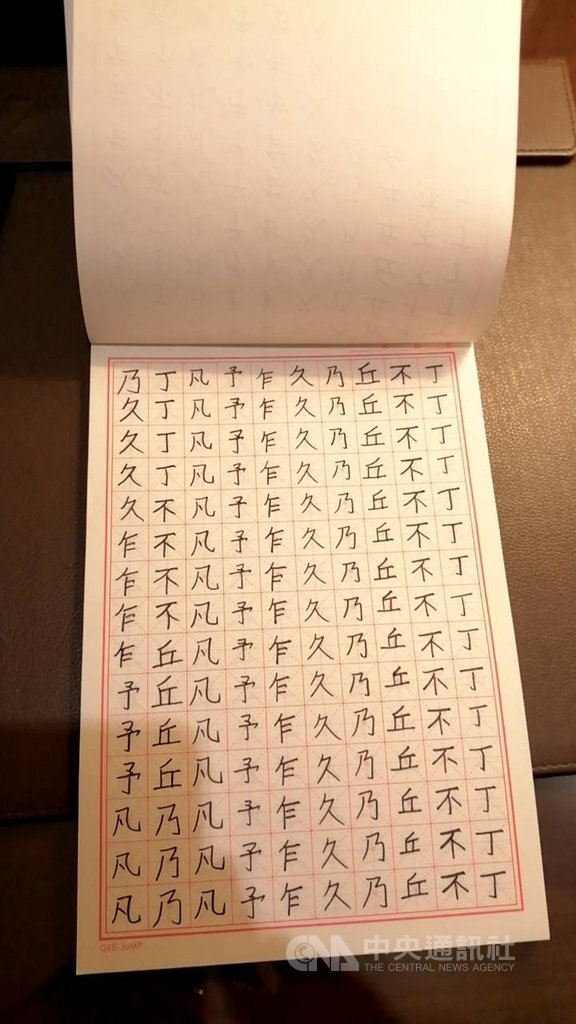 丁丁丁丁丁丁丁丁丁丁丁丁丁丁丁
不不不不不不不不不不不不不不不
丘丘丘丘丘丘丘丘丘丘丘丘丘丘丘
乃乃乃乃乃乃乃乃乃乃乃乃乃乃乃
久久久久久久久久久久久久久久久
乍乍乍乍乍乍乍乍乍乍乍乍乍乍乍
予予予予予予予予予予予予予予予
凡凡凡凡凡凡凡凡凡凡凡凡凡凡凡
丁丁丁丁不不不不丘丘丘丘乃乃乃
乃久久久久乍乍乍乍予予予凡凡凡
GEE-JUMP
CNA 中央通訊社
THE CENTRAL NEWS AGENCY